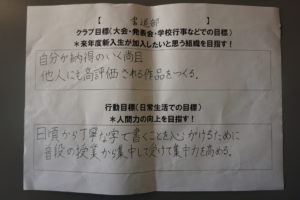 【 書道部 】
クラブ目標(大会・発表会・学校行事などでの目標)
*来年度新入生が加入したいと思う組織を目指す!
自分が納得のいく、尚且
他人にも高評価される作品をつくる。
行動目標(日常生活での目標)
*人間力の向上を目指す!
日頃から丁寧な字で書くことを心がけるために
普段の授業から集中して受けて集中力を高める。